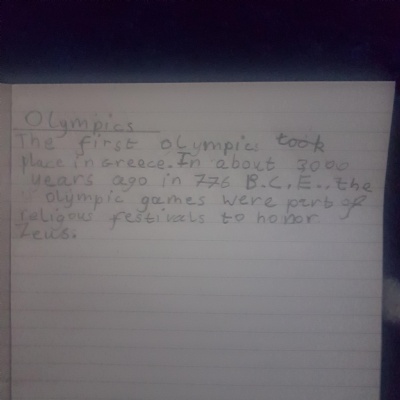 Olympics
The first olympic took
place in Greece. In about 3000
years ago in 776 B.C.E.. the
olympic games were part of
religous festivals to honor
Zeus.